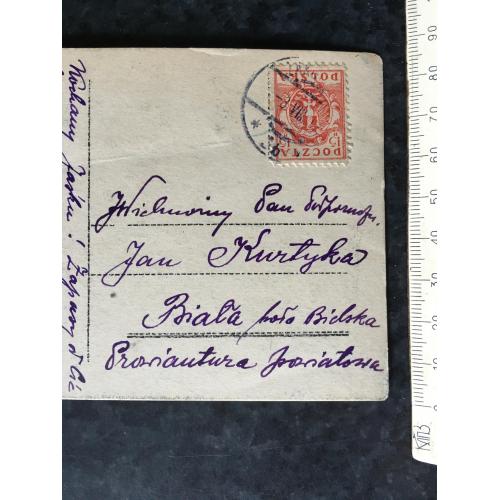 POLSKA
15 F 15
POCZTA
Wielmożny Pan
Jan Kurtyka
Biała koło Bielska
Prowiantura powiatowa
Kochany Jaśku! Zapasy
0 10 20 30 40 50 60 70 80 90